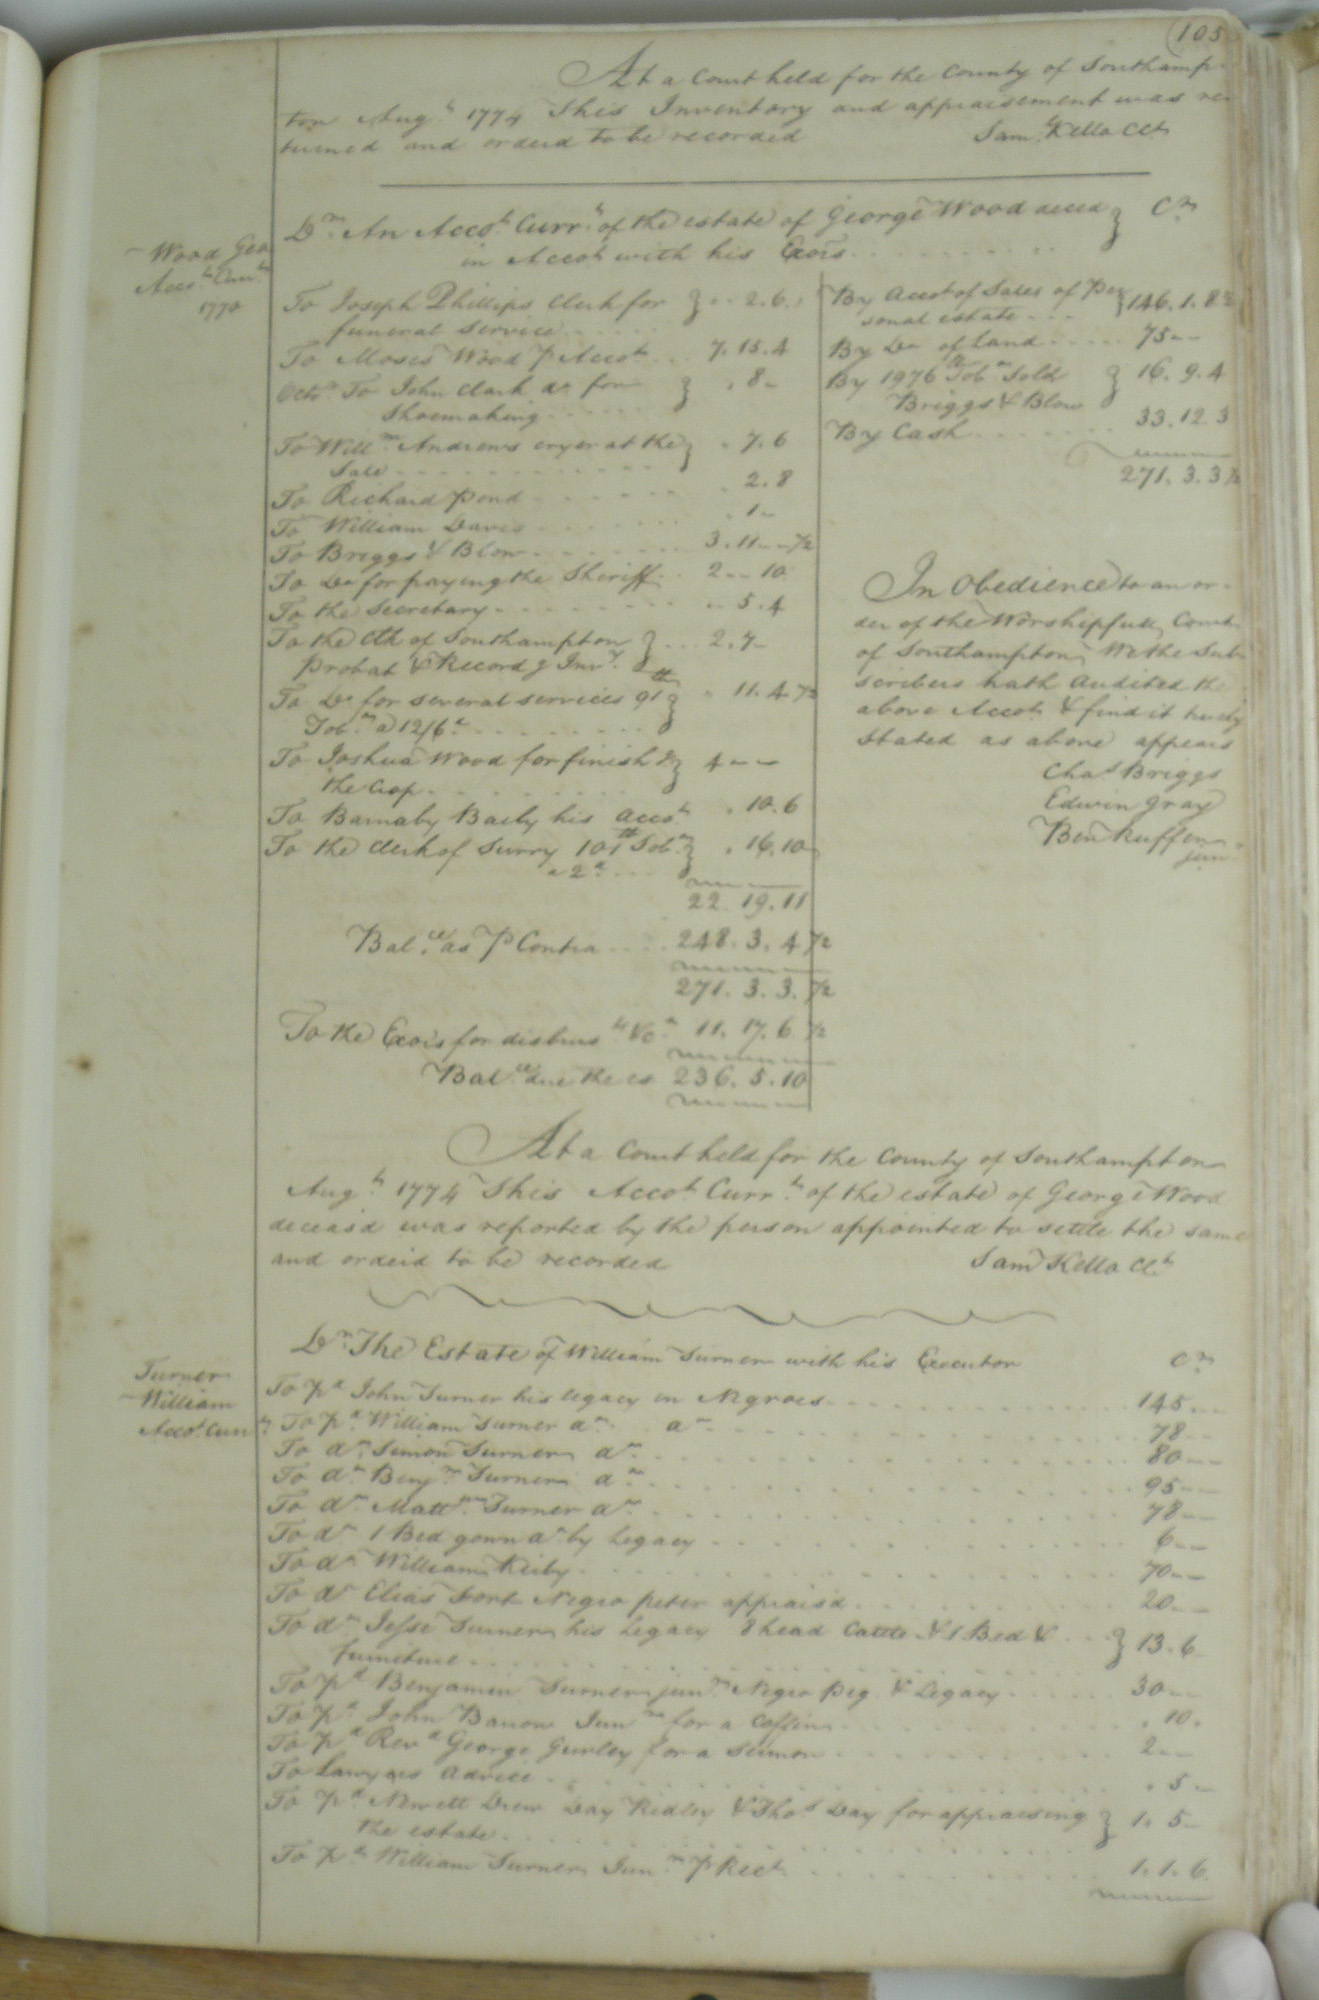 105
At a Court held for the County of Southamp-
ton Aug.t 1774 This Inventory and appraisement was re
turned and orderd to be recorded Sam.l Kello Clk
Dr. An Accot. Curr.t of the estate of George Wood deced } Cr.
in Accot. with his Exors.
Wood Geo
Acco.t Curr.t
1770
To Joseph Phillips Clerk for } .. 2.6.
funeral service
To Moses Wood p Accot. 7.15.4
Octo.r To John Clark do. for } . 8 -
Shoemaking
To Will.m Andrews cryer at the } . 7.6
Sale
To Richard Pond . 2.8
To William Davis . 1 -
To Briggs & Blow 3.11 - - 1/2
To Do for paying the Sheriff 2 - - 10
To the Secretary .. 5.4
To the Clk of Southampton } 2.7 -
Probat & Record g Inv.y
To Do for several services 91 lb } . 11.4 1/2
Tob.o a 12/6
To Joshua Wood for finish g } 4 - -
the Crop
To Barnaby Baily his Accot . 10.6
To the Clerk of Surry 101 lb Tob.o } . 16.10
a 2d
22.19.11
Bal.ce as p Contra 248.3.4 1/2
271.3.3. 1/2
To the Exors for disburs.ts &c.a 11.17.6 1/2
Bal.ce due the es 236.5.10
By Accot of Sales of Per } 146.1.8 1/2
sonal estate
By Do of Land 75 - -
By 1976 lb Tob.o Sold } 16.9.4
Briggs & Blow
By Cash 33.12.3
271.3.3 1/2
In Obedience to an or-
der of the Worshipfull Court
of Southampton We the Sub
scribers hath Audited the
above Accot. & find it truly
Stated as above appears
Cha.s Briggs
Edwin Gray
Ben Ruffin
jun.
At a Court held for the County of Southampton
Aug.t 1774 This Accot. Curr.t of the estate of George Wood
deceas'd was reported by the person appointed to settle the same
and order'd to be recorded Sam Kello Cl.k
Dr. The Estate of William Turner with his Executor Cr.
Turner
William
Acco.t Curr.t
To p.d John Turner his legacy in Negroes 145 - -
To p.d William Turner do. do. 78 - -
To do. Simon Turner do. 80 - -
To do. Benj.m Turner do. 95 - -
To do. Matt.w Turner do. 78 - -
To do. 1 Bed gown do. by Legacy 6 - -
To do. William Kirby 70 - -
To do. Elias Fort Negro peter apprais'd 20 - -
To do. Jesse Turner his Legacy 8 head Cattle & 1 Bed & } 13.6
furniture
To p.d Benjamin Turner jun.r Negro Peg & Legacy 30 - -
To p.d John Barrow Jun.r for a Coffin . 10 .
To p.d Rev.d George Gurley for a Sermon 2 - -
To Lawyers Advice . 5 -
To p.d Newitt Drew Day Ridley & Tho.s Day for appraising } 1.5 -
the estate
To p.d William Turner Jun.r p Rect. 1.1.6